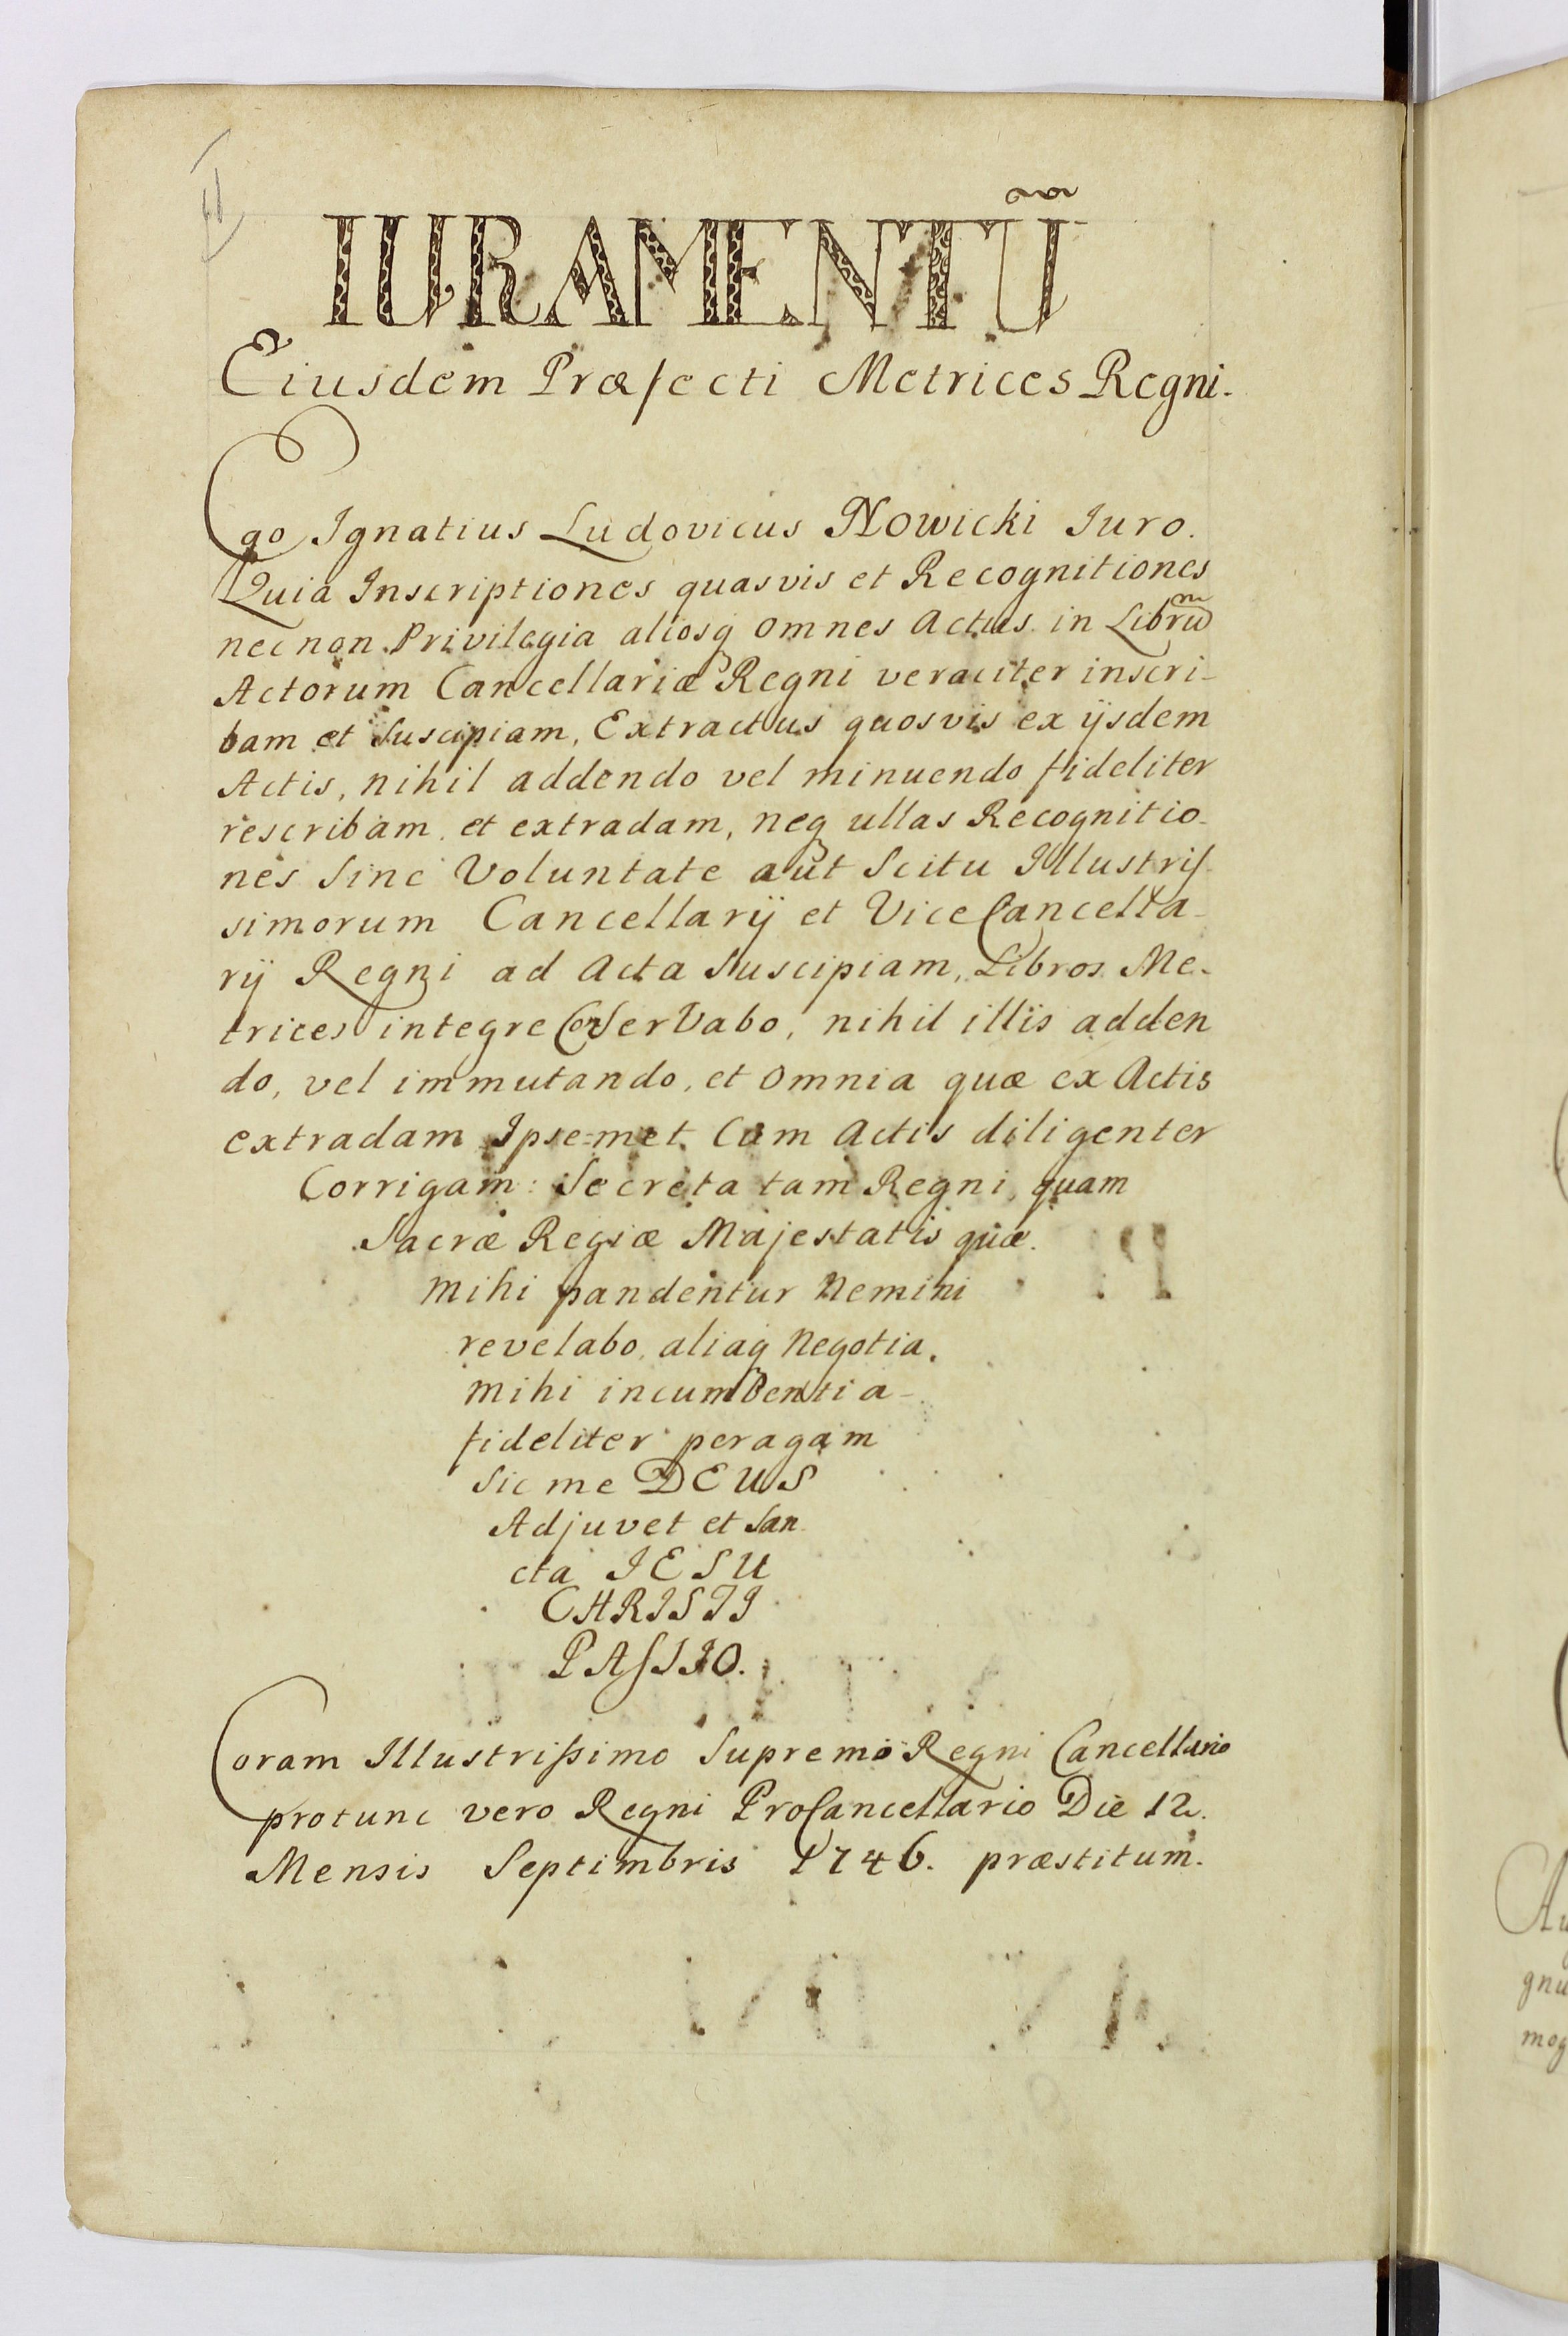 IURAMENTŪ
Eiusdem Præfecti Metrices Regni.
Ego Ignatius Ludovicus Nowicki Iuro.
Quia Inscriptiones quasvis et Recognitiones
nec non Privilegia aliosq omnes Actus in Librũ
Actorum Cancellariæ Regni veraciter inscri-
bam et Suscipiam, Extractus quosvis ex ijsdem
Actis, nihil addendo vel minuendo fideliter
rescribam et extradam, neq ullas Recognitio-
nes Sine Voluntate aut Scitu Illustris-
simorum Cancellarij et ViceCancella-
rij Regni ad Acta Suscipiam, Libros Me-
trices integre ConServabo, nihil illis adden
do, vel immutando, et omnia quæ ex Actis
extradam Ipse=met Cum Actis diligenter
Corrigam: Secreta tam Regni, quam
Sacræ Regiæ Majestatis quæ
mihi pandentur Nemini
revelabo, aliaq Negotia
mihi incumbentia
fideliter peragam
Sic me DEUS
Adjuvet et San
cta IESU
CHRISTI
PASSIO.
Coram Illustrissimo Supremo Regni Cancellario
protunc vero Regni ProCancellario Die 12.
Mensis Septimbris 1746. præstitum.